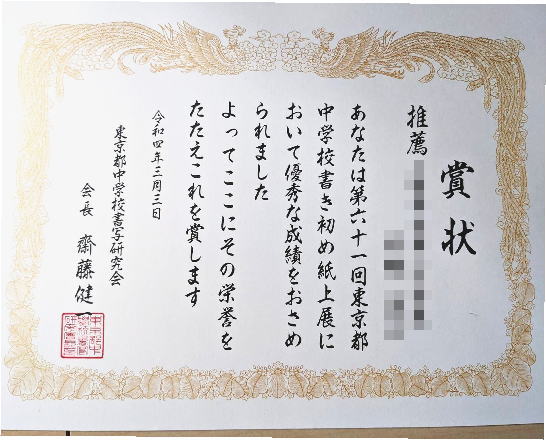 賞状
推薦
あなたは第六十一回東京都
中学校書き初め紙上展に
おいて優秀な成績をおさめ
られました
よってここにその栄誉を
たたえこれを賞します
令和四年三月三日
東京都中学校書写研究会
会長 齋藤健一